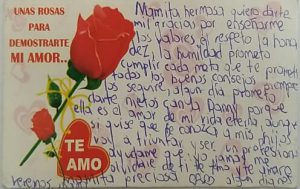 UNAS ROSAS
PARA
DEMOSTRARTE
MI AMOR...
TE
AMO
Mamita hermosa quiero darte
mil gracias por enseñarme
los valores el respeto la hon
dez, la humildad prometo
cumplir cada meta que te
todos los buenos consejos siempre
los seguire, algun dia prometo
darte nietos con la Danny porque
ella es el amor de mi vida eterna aunque
quise que te conozca a mis hijos
voy a triunfar y ser un profesional
ayudame que yo jamas me
olvidare de ti te amo y te
veremos mamita preciosa algun dia